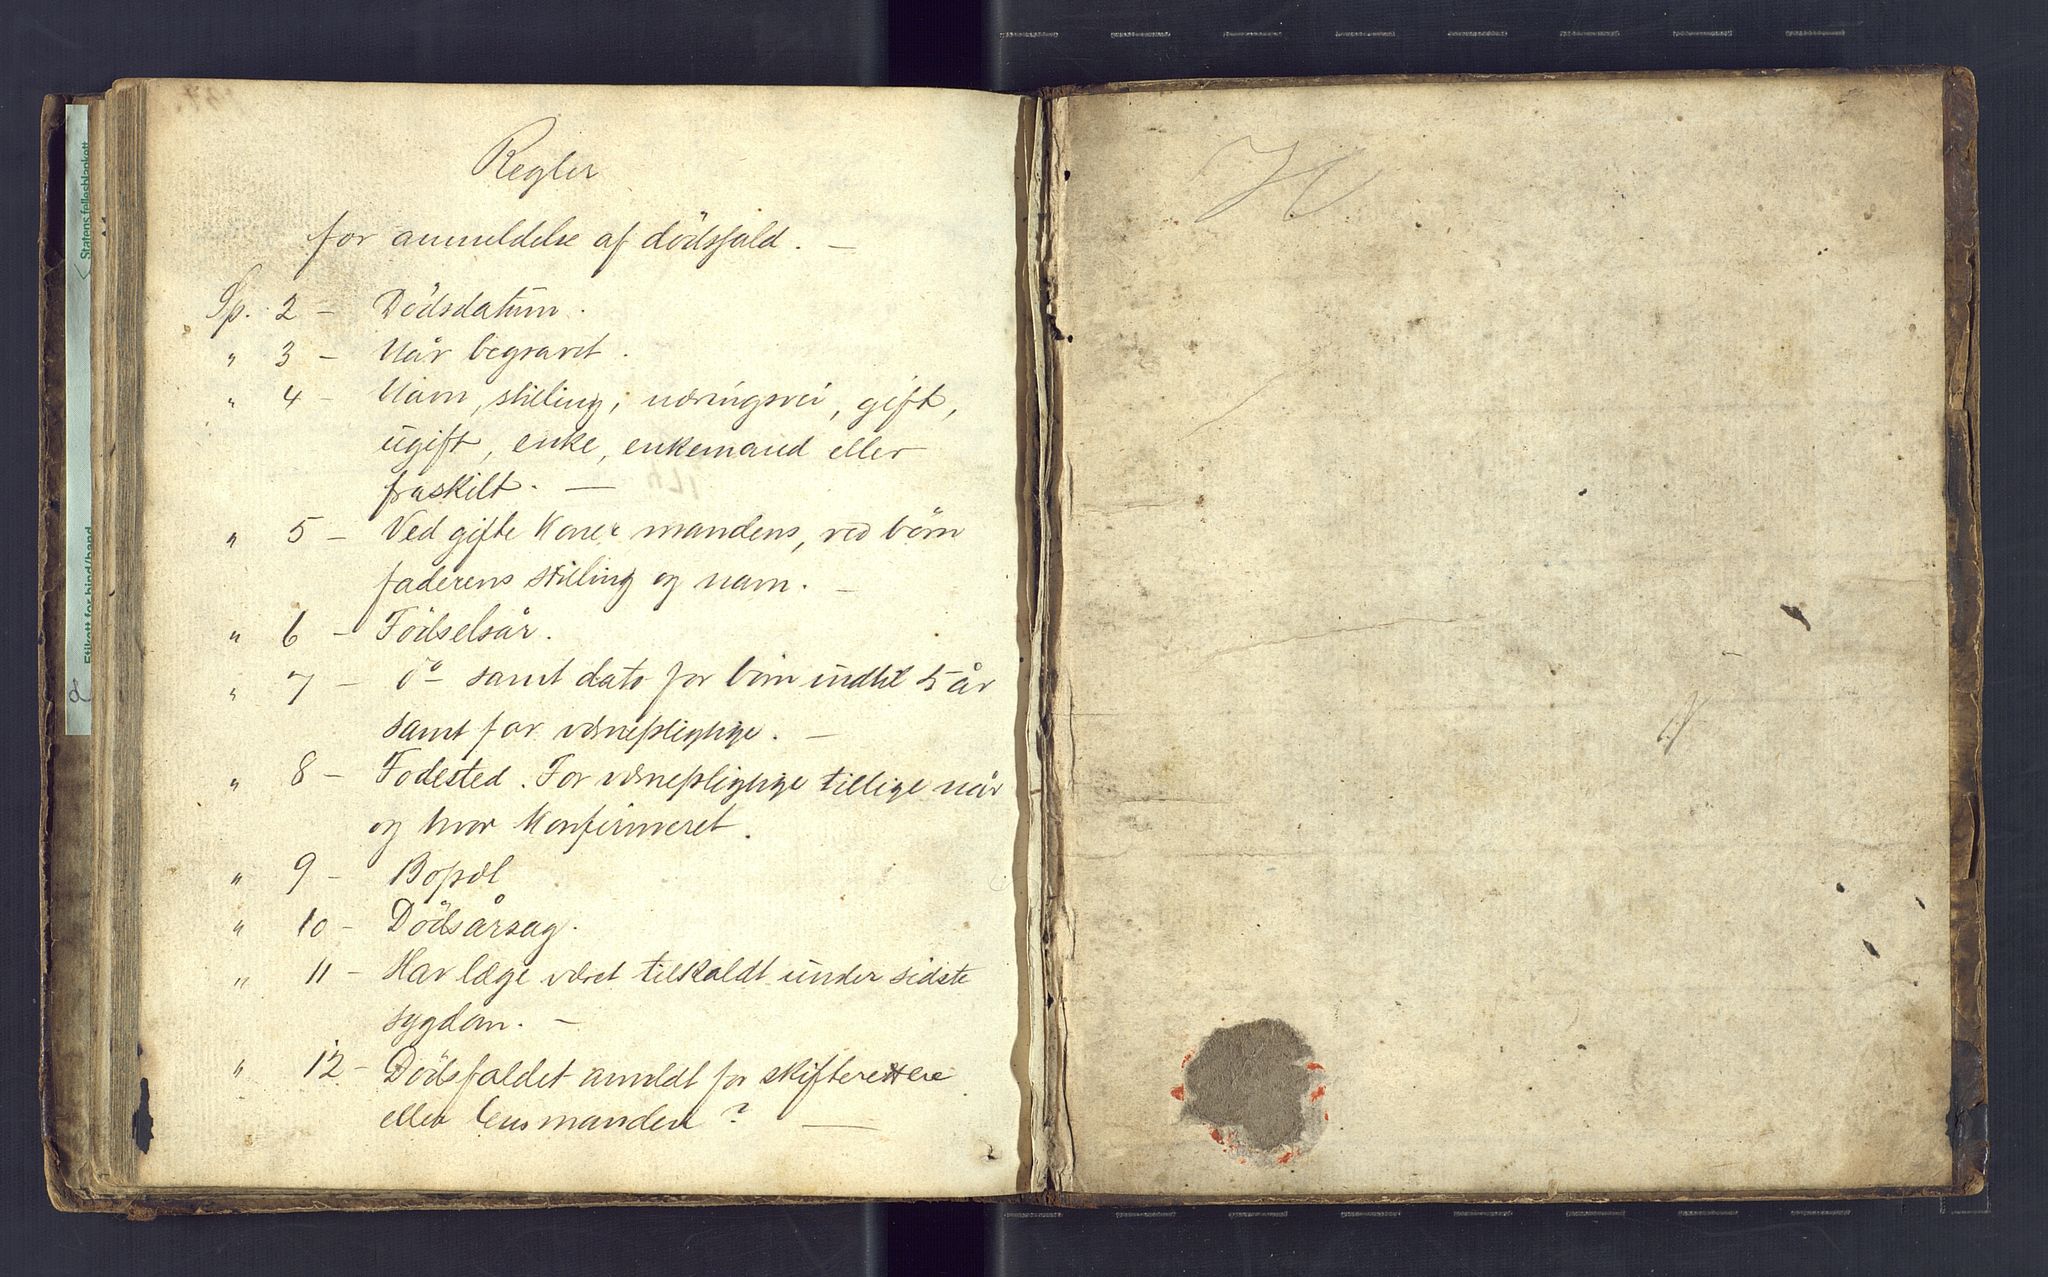 Regler
for anmeldelse af dödsfald. —
Sp. 2 – Dödsdatum.
" 3 – Når begravet.
" 4 – Navn, stilling, næringsvei, gift,
ugift, enke, enkemand eller
fraskilt. —
" 5 – Ved gifte Koner mandens, ved börn
faderens stilling og navn. —
" 6 – Födselsår.
" 7 – do samt dato for börn indtil 5 år
samt for værnepligtige. —
" 8 – Fodested. For værnepligtige tillige når
og hvor Konfirmeret.
" 9 – Bopæl
" 10 – Dödsårsag.
" 11 – Har læge været tilkaldt under sidste
sygdom. —
" 12 – Dödsfaldet anmeldt for skifteretten
eller lensmanden? —
Statens fellesblankett
Etikett for bind/band
8
H